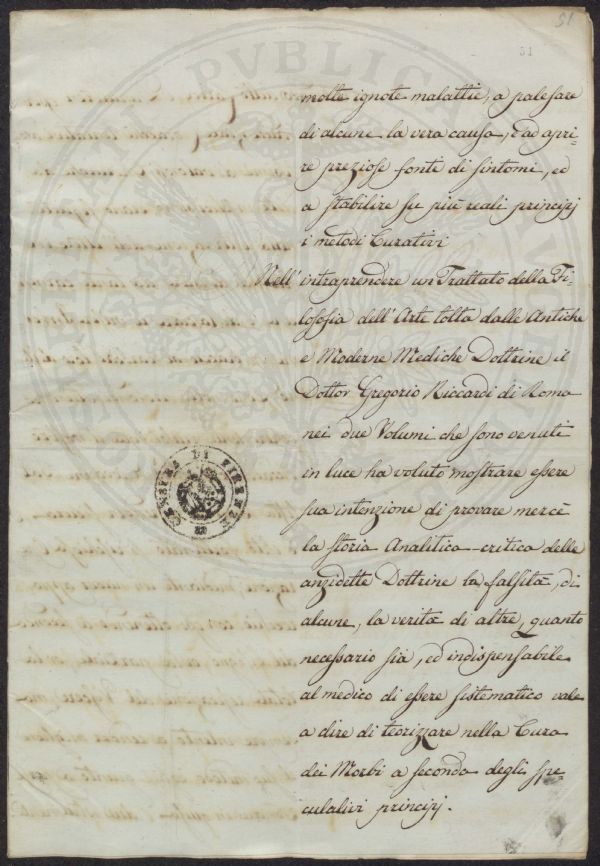 51
51
molte ignote malattie, a palesare
di alcune la vera causa, ed apri-
re preziose fonti di sintomi, ed
a stabilire su più reali principj
i metodi Curativi
Nell' intraprendere un Trattato della Fi-
losofia dell'Arte tolta dalle Antiche
e Moderne Mediche Dottrine il
Dottor Gregorio Riccardi di Roma
nei due Volumi che sono venuti
in luce ha voluto mostrare essere
sua intenzione di provare mercè
la storia Analitica-critica delle
anzidette Dottrine la falsità, di
alcune, la verità di altre, quanto
necessario sia, ed indispensabile
al medico di essere sistematico vale
a dire di teorizzare nella Cura
dei Morbi a seconda degli spe
culativi principj.
CENSURA DI FIRENZE
PUBLICA